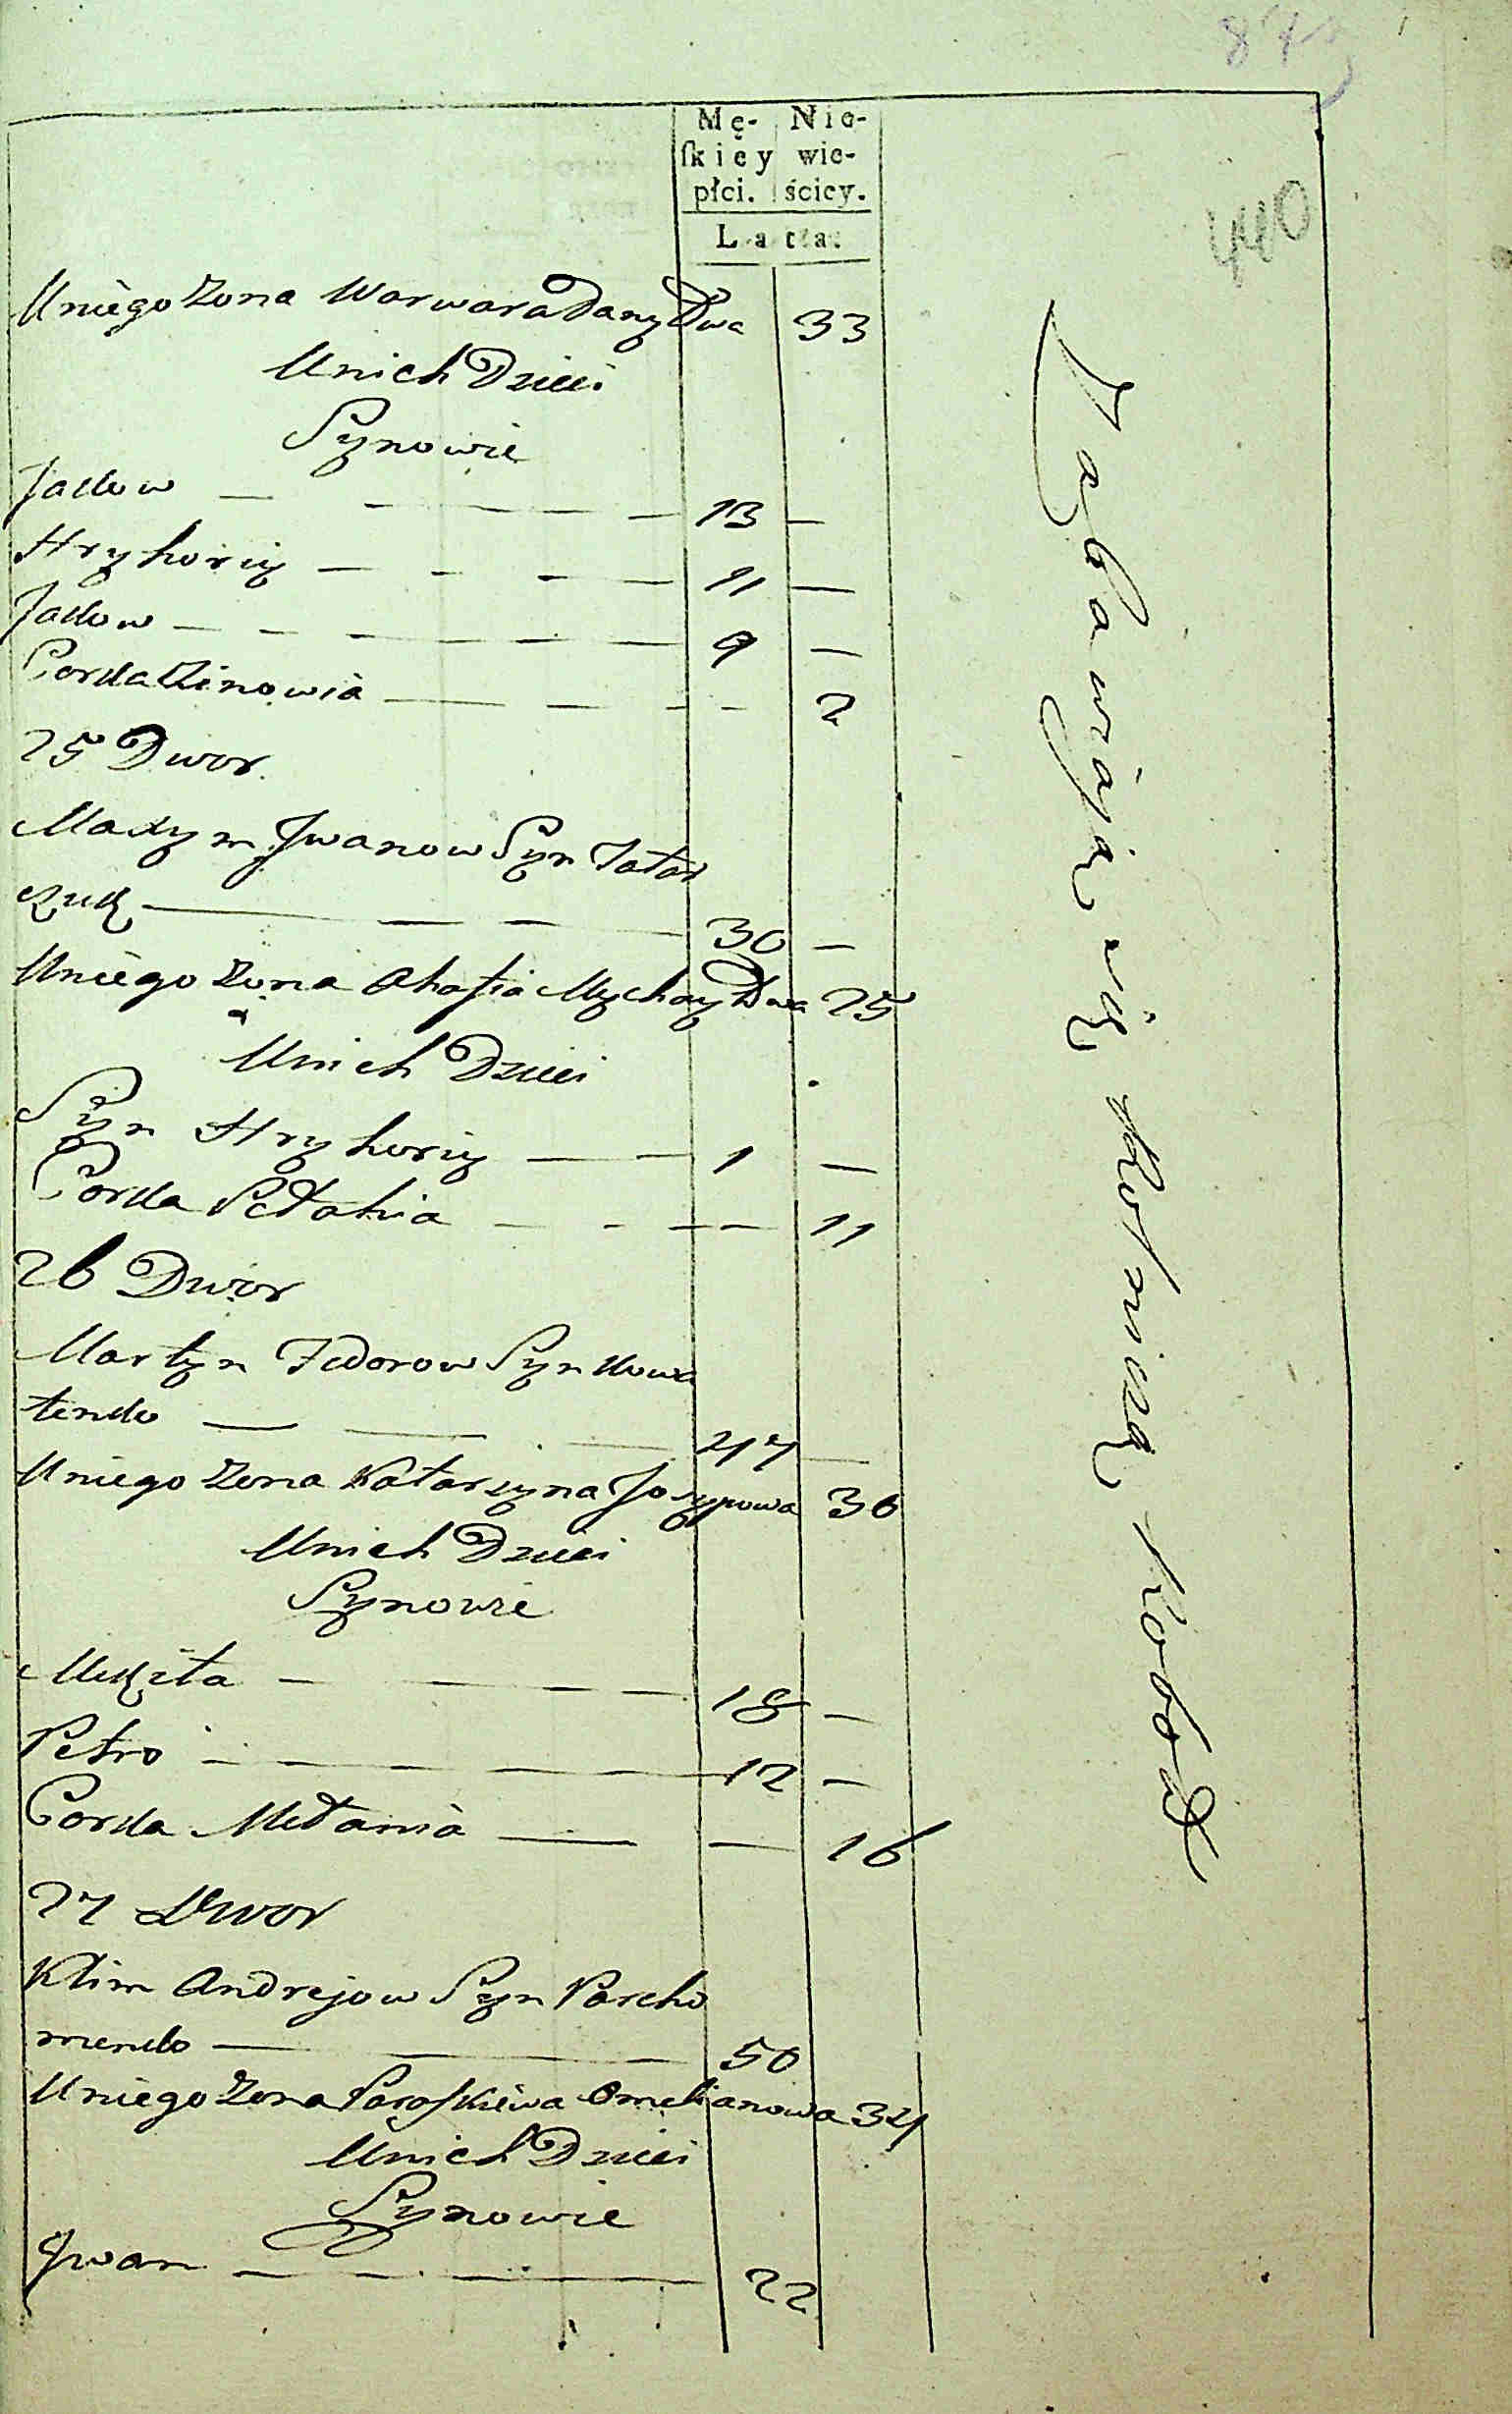 873
440
Mę- Nie-
ſkiey wie-
płci. ściey.
Lata.
Uniego Zona Warwara Danyłowa 33
Unich Dzieci
Synowie
Jakow — — — — 13 —
Hryhoriy — — — — 11 —
Jakow — — — — — 9 —
Corka Zinowia — — — — 2
25 Dwor.
Maxym Jwanow Syn Tatar
czuk — — — — 30 —
Uniego Zona Ahafia Mychayłowa 25
Unich Dzieci
Syn Hryhoriy — — 1 —
Corka Pełahia — — — — 11
26 Dwor
Martyn Fedorow Syn Kowa
lenko — — — 47 —
Uniego Zona Katarzyna Josypowa 36
Unich Dzieci
Synowie
Mykita — — — — 18 —
Petro — — — — — 12 —
Corka Mełania — — 16
27 Dwor
Klim Andrejow Syn Parcho
menko — — — 50
Uniego Zona Paraskiewa Omelianowa 34
Unich Dzieci
Synowie
Jwan — — — — 22
Zabawiaią się Rolniczą Robotą